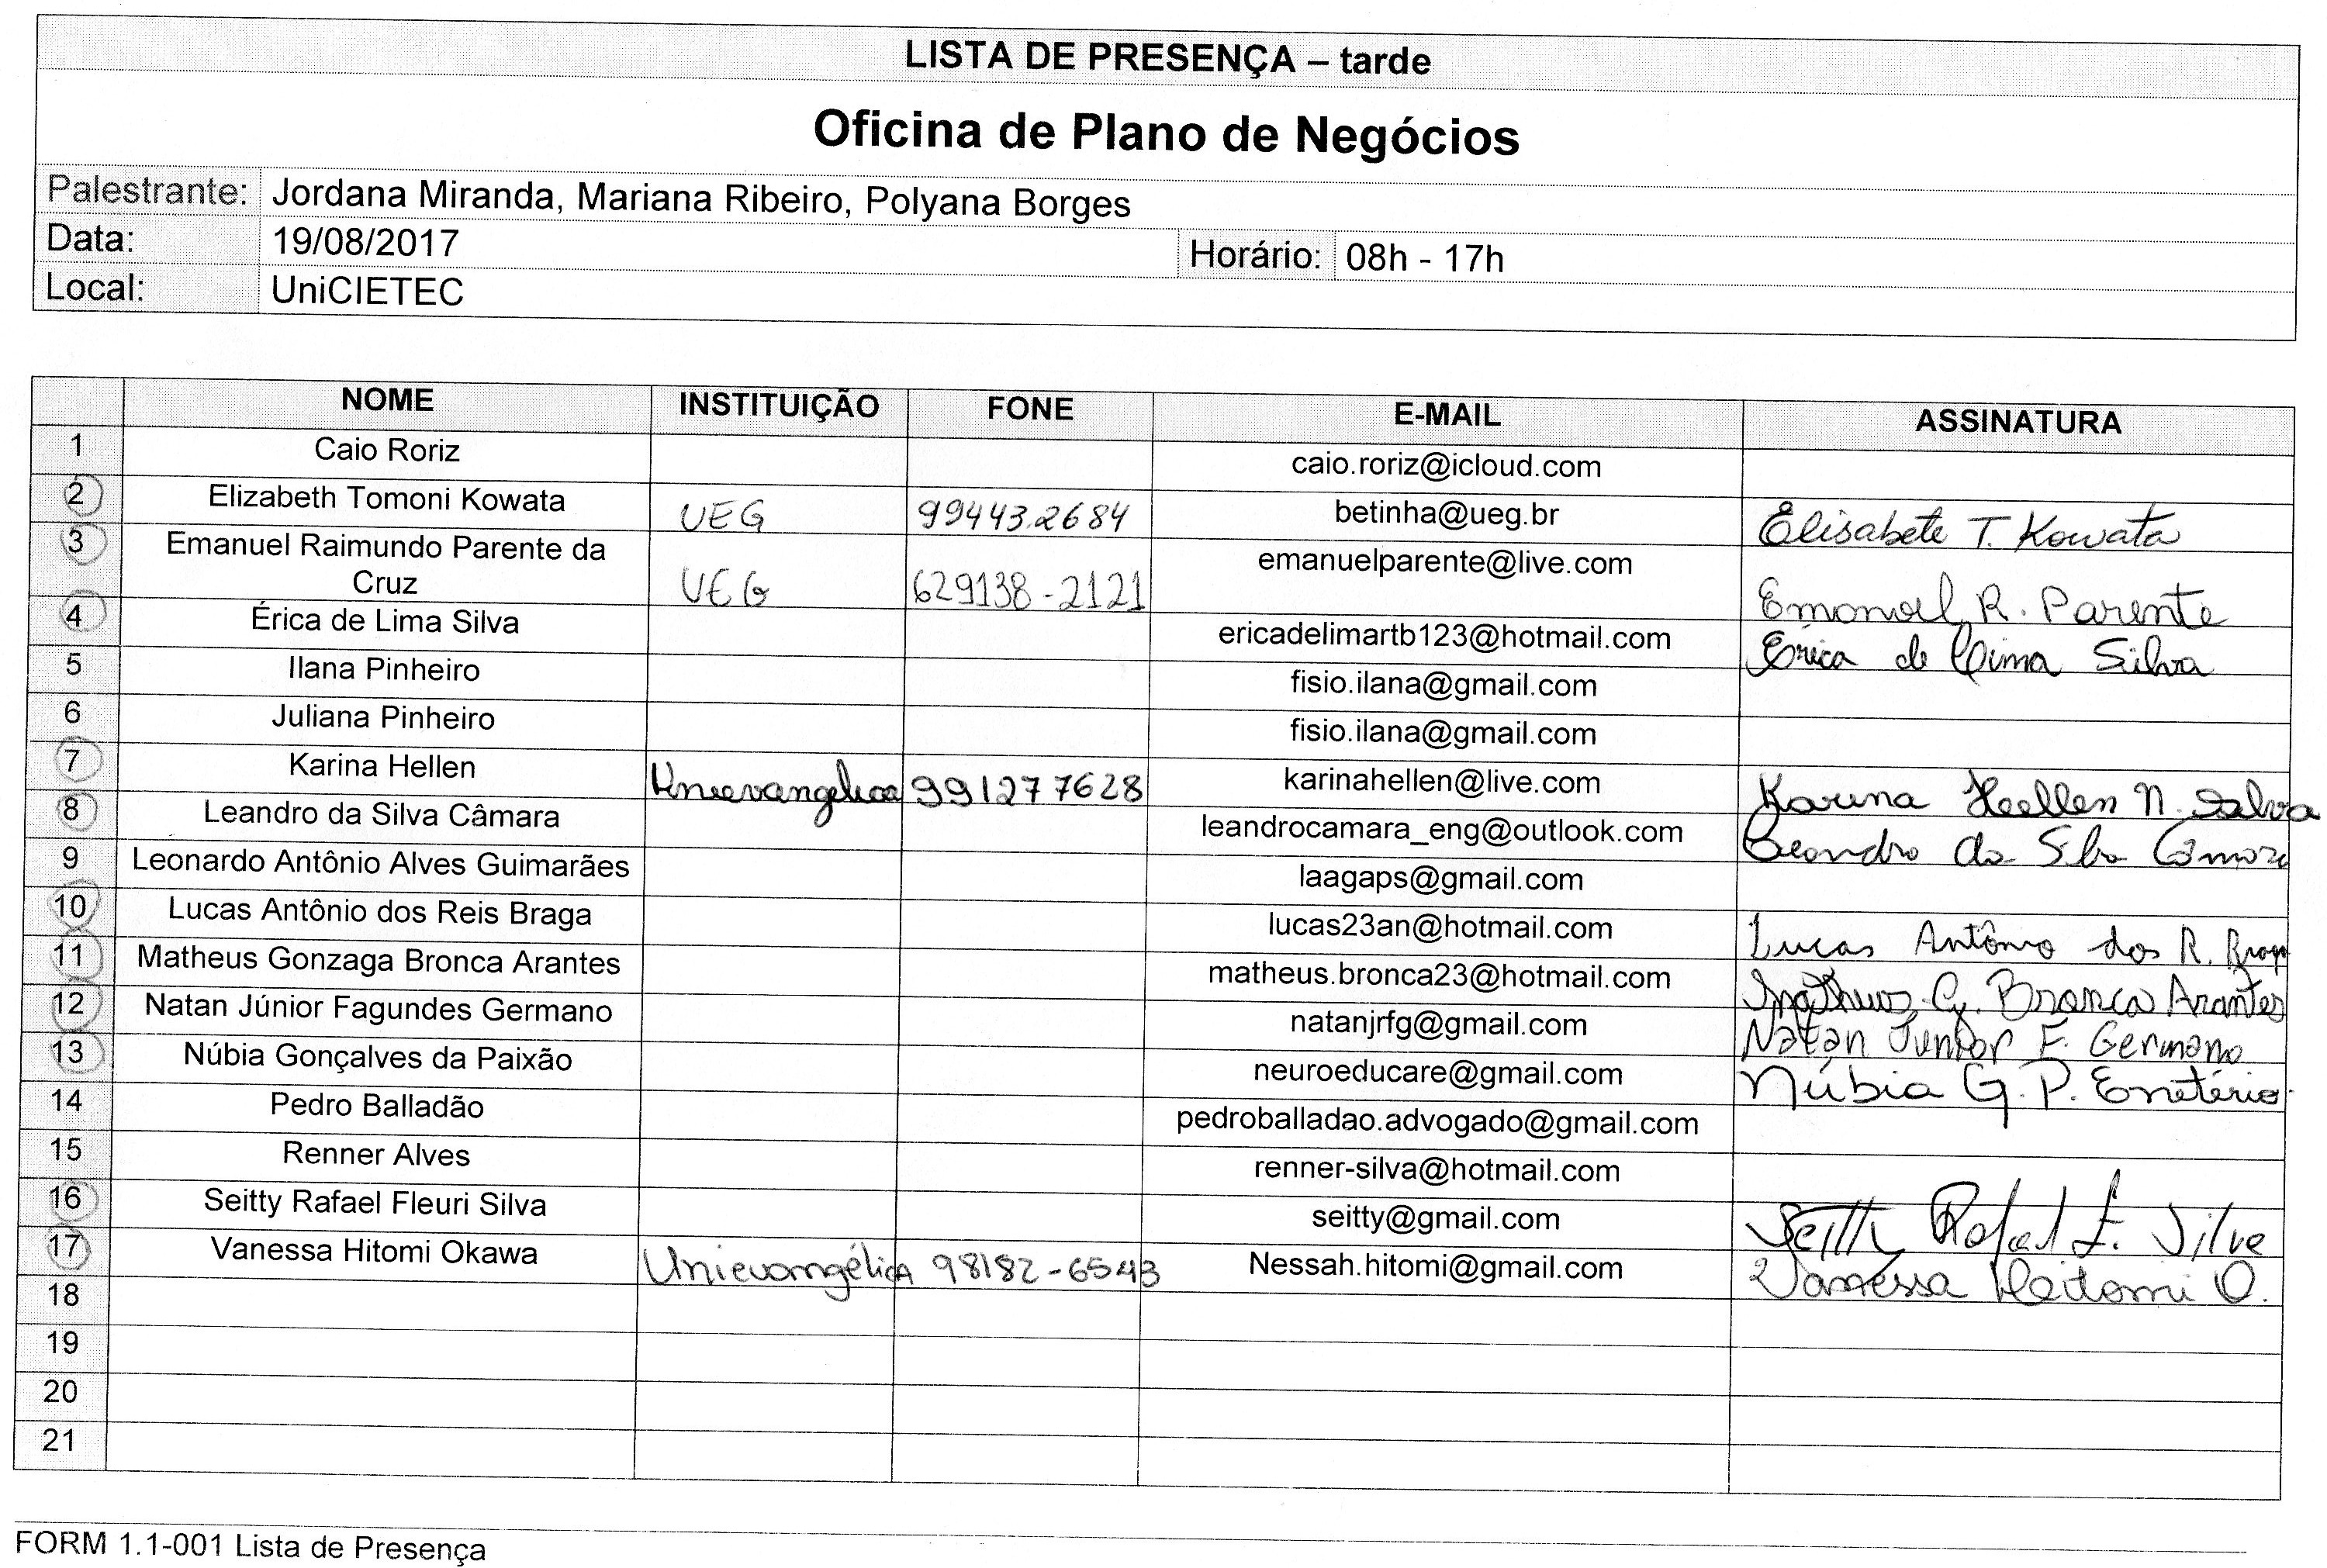 LISTA DE PRESENÇA – tarde
Oficina de Plano de Negócios
Palestrante: Jordana Miranda, Mariana Ribeiro, Polyana Borges
Data: 19/08/2017 Horário: 08h - 17h
Local: UniCIETEC
NOME INSTITUIÇÃO FONE E-MAIL ASSINATURA
1 Caio Roriz caio.roriz@icloud.com
2 Elizabeth Tomoni Kowata UEG 99443.2684 betinha@ueg.br Elisabete T. Kowata
3 Emanuel Raimundo Parente da
Cruz UEG 629138-2121 emanuelparente@live.com Emanoel R. Parente
4 Érica de Lima Silva ericadelimartb123@hotmail.com Érica de Lima Silva
5 Ilana Pinheiro fisio.ilana@gmail.com
6 Juliana Pinheiro fisio.ilana@gmail.com
7 Karina Hellen Unievangelica 991277628 karinahellen@live.com Karina Hellen N. Salva
8 Leandro da Silva Câmara leandrocamara_eng@outlook.com Leandro da Silva Câmara
9 Leonardo Antônio Alves Guimarães laagaps@gmail.com
10 Lucas Antônio dos Reis Braga lucas23an@hotmail.com Lucas Antônio dos R. Braga
11 Matheus Gonzaga Bronca Arantes matheus.bronca23@hotmail.com Matheus G. Bronca Arantes
12 Natan Júnior Fagundes Germano natanjrfg@gmail.com Natan Junior F. Germano
13 Núbia Gonçalves da Paixão neuroeducare@gmail.com Núbia G. P. Emetério
14 Pedro Balladão pedroballadao.advogado@gmail.com
15 Renner Alves renner-silva@hotmail.com
16 Seitty Rafael Fleuri Silva seitty@gmail.com Seitty Rafael F. Silva
17 Vanessa Hitomi Okawa Unievangélica 98182-6543 Nessah.hitomi@gmail.com Vanessa Hitomi O.
18
19
20
21
FORM 1.1-001 Lista de Presença